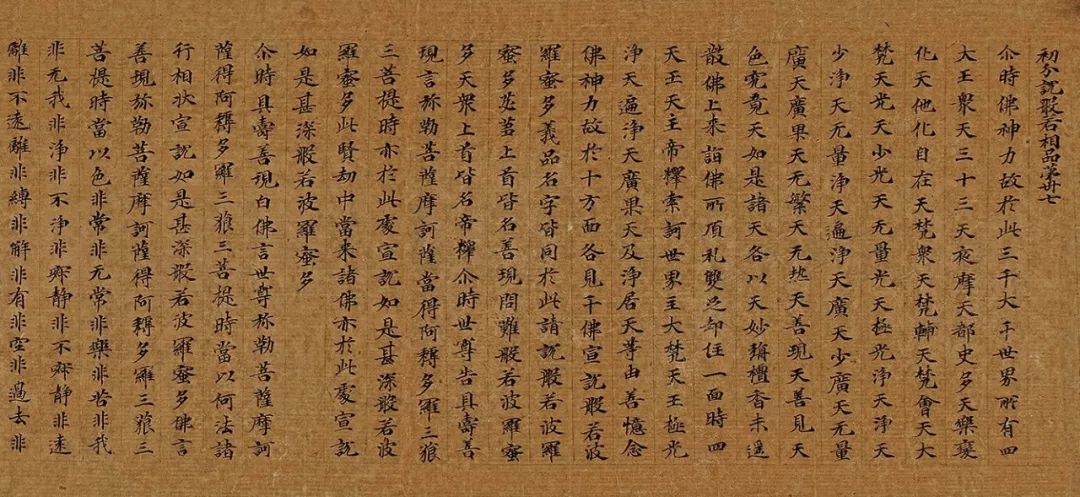 初分說般若相品第卅七
尒時佛神力故於此三千大千世界所有四
大王衆天三十三天夜摩天都史多天樂變
化天他化自在天梵衆天梵輔天梵會天大
梵天光天少光天无量光天極光淨天淨天
少淨天无量淨天遍淨天廣天少廣天无量
廣天廣果天无繁天无热天善現天善見天
色究竟天如是諸天各以天妙旃檀香末遥
散佛上来詣佛所頂礼雙足却住一面時四
天王天主帝釋索訶世界主大梵天王極光
淨天遍淨天廣果天及淨居天等由善憶念
佛神力故於十方面各見千佛宣說般若波
羅蜜多義品名字皆同於此請說般若波羅
蜜多苾芻上首皆名善現問難般若波羅蜜
多天衆上首皆名帝釋尒時世尊告具壽善
現言弥勒菩薩摩訶薩當得阿耨多羅三藐
三菩提時亦於此處宣說如是甚深般若波
羅蜜多此賢劫中當来諸佛亦於此處宣說
如是甚深般若波羅蜜多
尒時具壽善現白佛言世尊弥勒菩薩摩訶
薩得阿耨多羅三藐三菩提時當以何法諸
行相狀宣說如是甚深般若波羅蜜多佛言
善現弥勒菩薩摩訶薩得阿耨多羅三藐三
菩提時當以色非常非无常非樂非苦非我
非无我非淨非不淨非寂静非不寂静非遠
離非不遠離非縛非解非有非空非過去非